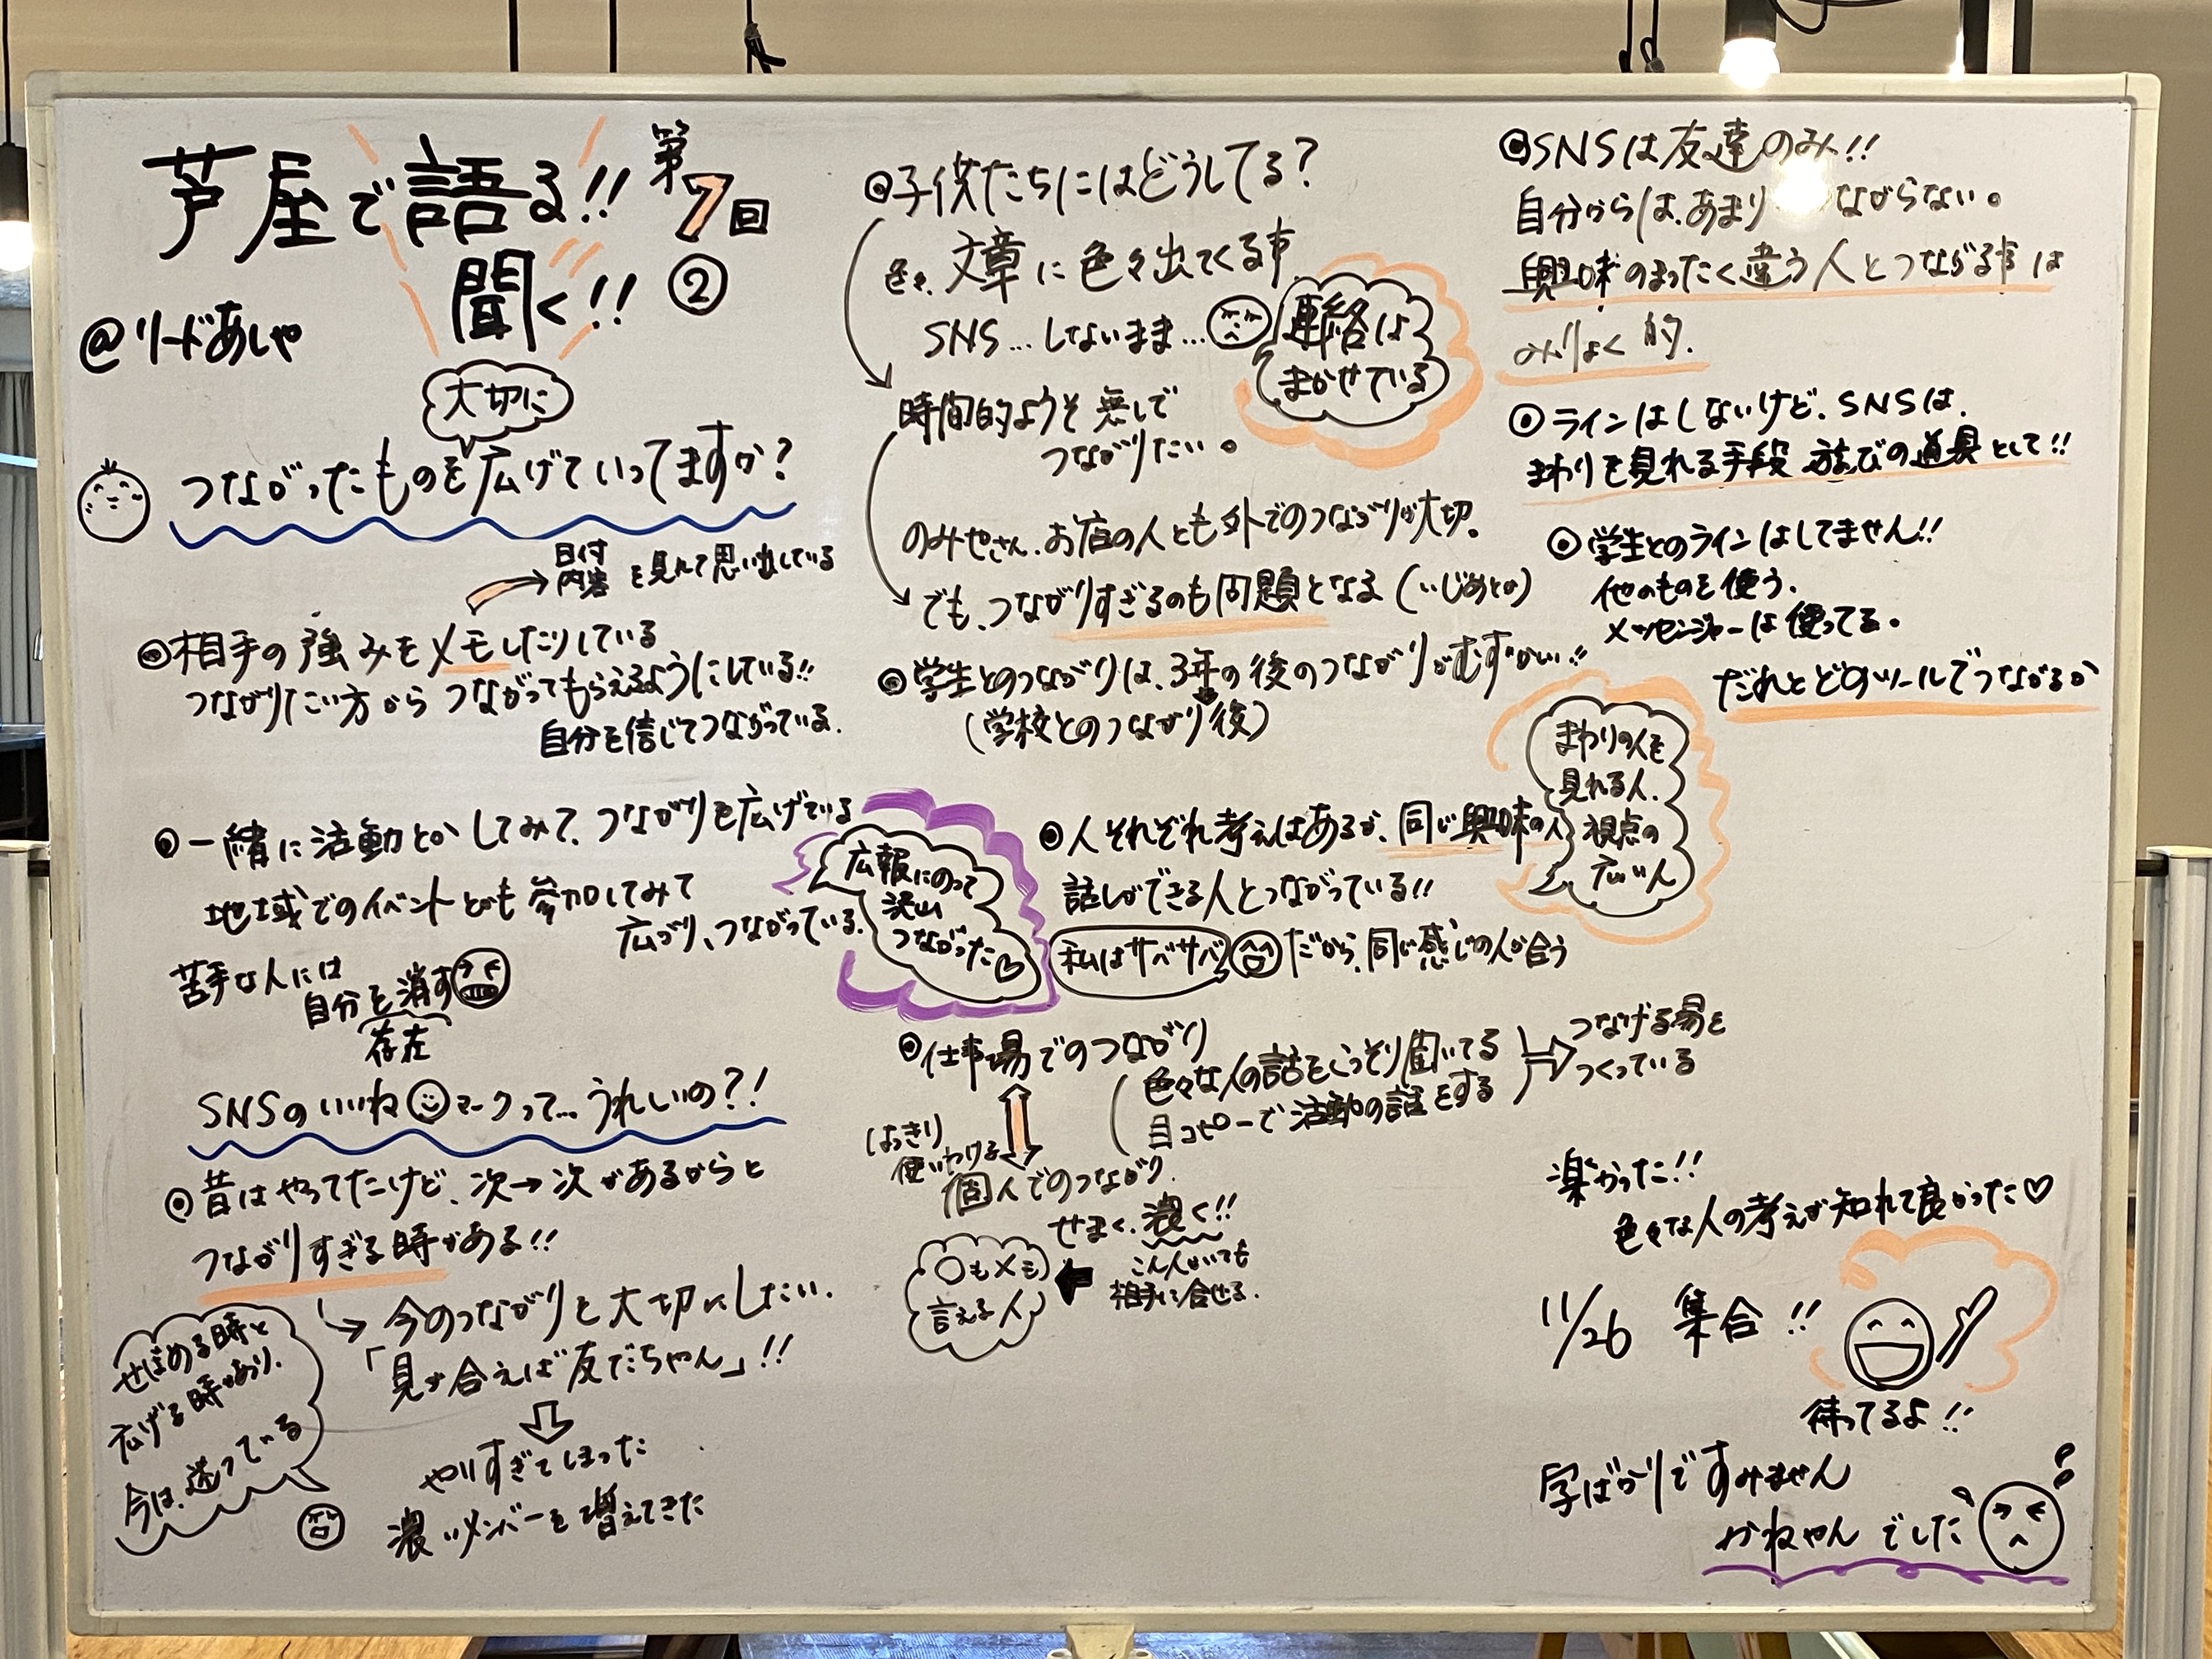 芦屋で語る!! 第7回
聞く!! ②
@リードあしや
大切に
つながったものを広げていってますか?
日付
内容 を見れて思い出している
◎相手の強みをメモしたりしている
つながりたい方からつながってもらえるようにしている!!
自分を信じてつながっている.
◎一緒に活動とかしてみて、つながりを広げている
地域でのイベントとかも参加してみて
広がり、つながっている.
広報にのって
沢山
つながった♡
苦手な人には
自分を消す
存在
SNSのいいねマークって…うれしいの?!
◎昔はやってたけど、次→次があるからと
つながりすぎる時がある!!
↳今のつながりを大切にしたい.
「見が合えば友だちゃん」!!
⇩
やりすぎてしまった
濃いメンバーを増えてきた
せばめる時と
広げる時があり.
今は、迷っている
◎子供たちにはどうしてる?
色々、文章に色々出てくる事
SNS…しないまま…
連絡は
まかせている
時間的ようそ無しで
つながりたい。
のみやさん、お店の人とも外でのつながりが大切。
でも、つながりすぎるのも問題となる(いじめとか)
◎学生とのつながりは、3年の後のつながりがむずかしい!!
(学校とのつながり後)
◎人それぞれ考えはあるが、同じ興味の人
話しができる人とつながっている!!
まわりの人を
見れる人.
視点の
広い人
私はサバサバ だから、同じ感じの人が合う
◎仕事場でのつながり
(色々な人の話をこっそり聞いてる
目コピーで活動の話をする)
⇒つなげる場を
つくっている
はっきり
使いわける
個人でのつながり.
せまく、濃く!!
こん人がいても
相手に合せる.
○も×も
言える人
◎SNSは友達のみ!!
自分からは、あまりつながらない。
興味のまったく違う人とつながる事は
みりょく的.
◎ラインはしないけど、SNSは、
まわりを見れる手段 遊びの道具として!!
◎学生とのラインはしてません!!
他のものを使う.
メッセンジャーは使ってる。
だれとどのツールでつながるか
楽かった!!
色々な人の考えが知れて良かった♡
11/26 集合!!
待ってるよ!!
字ばかりですみません
かねやんでした